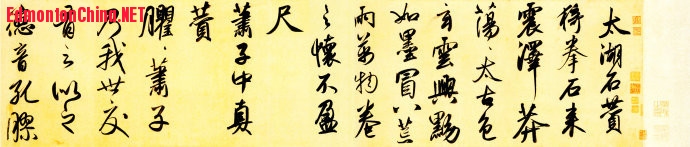 EdmontonChina.NET
太湖石贊
猗拳石来
震澤莽
蕩々太古色
玄雲興黝
如墨冒八荒
雨萬物卷
之懷不盈
尺
蕭子中真
贊
臞々蕭子
乃我世交
有之似之
德音孔膠